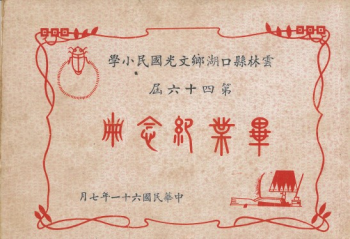 雲林縣口湖鄉文光國民小學
第四十六屆
畢業紀念冊
中華民國六十一年七月